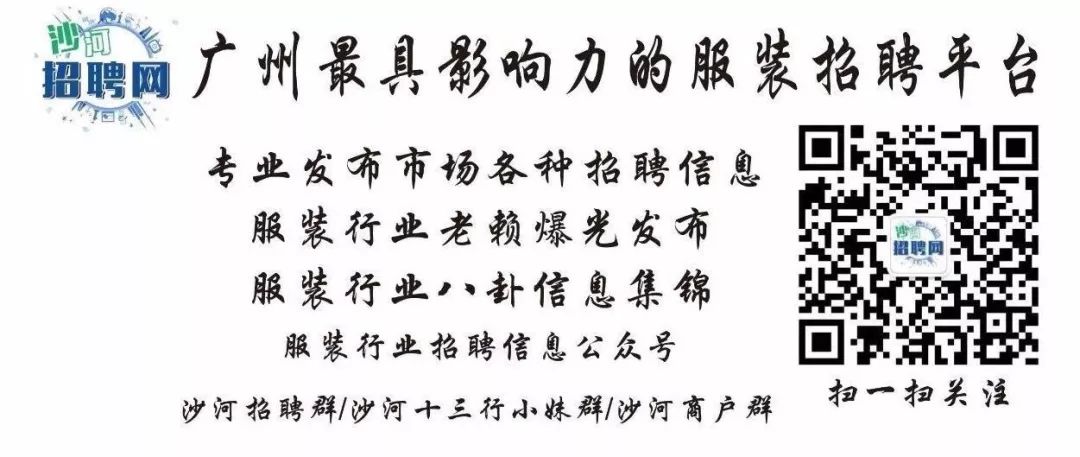 沙河
招聘网
广州最具影响力的服装招聘平台
专业发布市场各种招聘信息
服装行业老赖爆光发布
服装行业八卦信息集锦
服装行业招聘信息公众号
沙河招聘群/沙河十三行小妹群/沙河商户群
沙河
招聘网
扫一扫关注